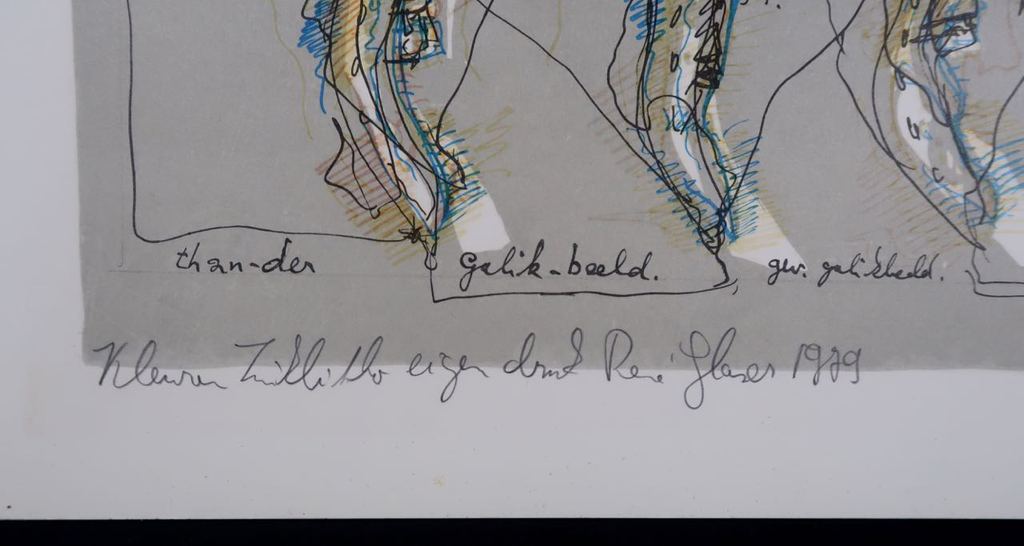 than-der galik-beeld. gew. galikbeeld.
Kleuren Zinklitho eigen druk René Glaser 1979